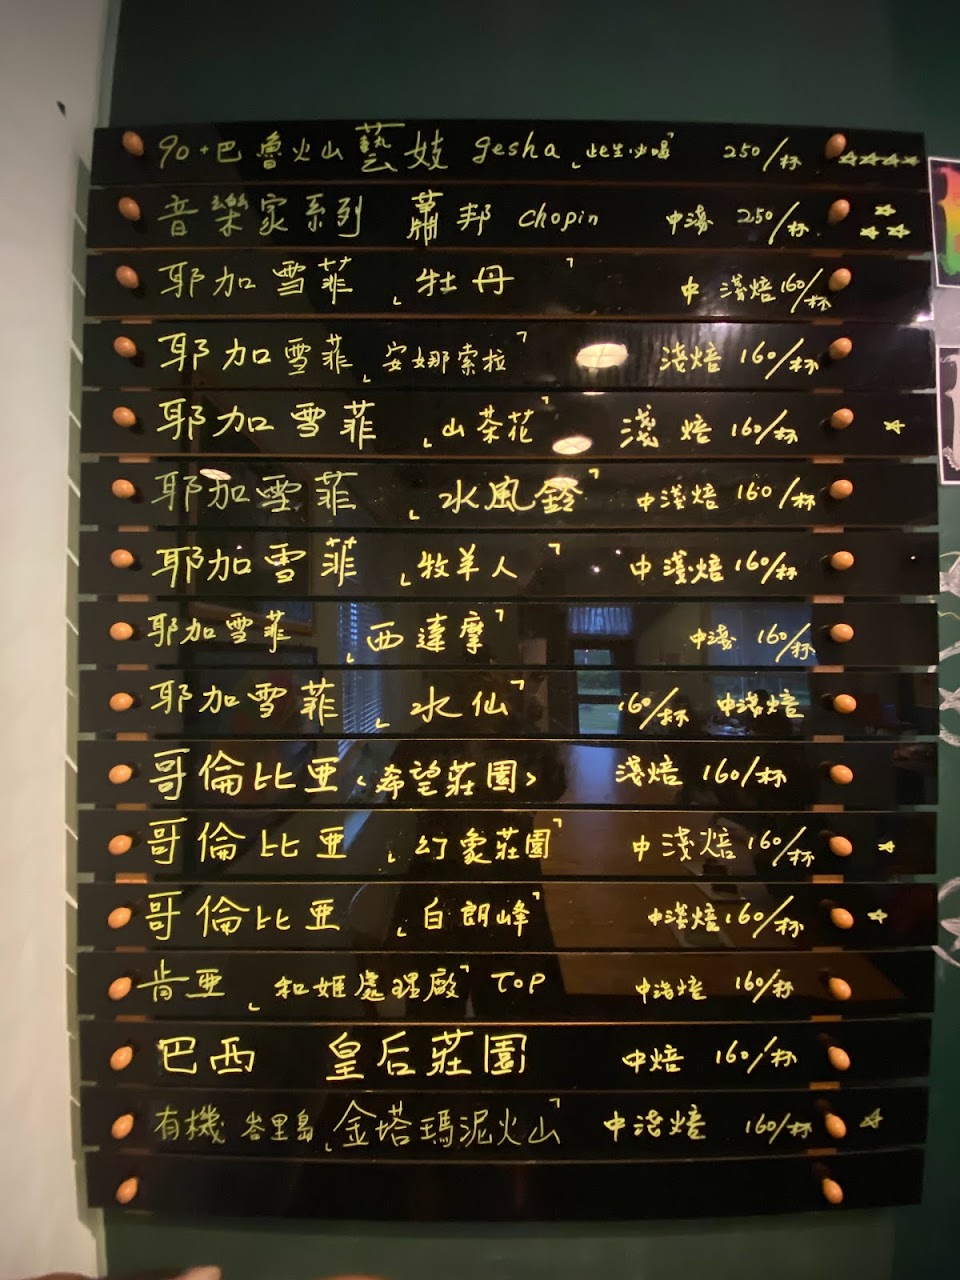 90+巴魯火山藝妓 gesha「此生必喝」 250/杯 ☆☆☆☆
音樂家系列 蕭邦 chopin 中淺 250/杯 ☆☆☆
耶加雪菲「牡丹」 中淺焙 160/杯
耶加雪菲「安娜索拉」 淺焙 160/杯
耶加雪菲「山茶花」 淺焙 160/杯 ☆
耶加雪菲「水風鈴」 中淺焙 160/杯
耶加雪菲「牧羊人」 中淺焙 160/杯
耶加雪菲「西達摩」 中淺 160/杯
耶加雪菲「水仙」 160/杯 中淺焙
哥倫比亞<希望莊園> 淺焙 160/杯
哥倫比亞「幻象莊園」 中淺焙 160/杯 ☆
哥倫比亞「白朗峰」 中淺焙 160/杯 ☆
肯亞「和姬處理廠」 TOP 中淺焙 160/杯
巴西 皇后莊園 中焙 160/杯
有機 峇里島「金塔瑪泥火山」 中淺焙 160/杯 ☆